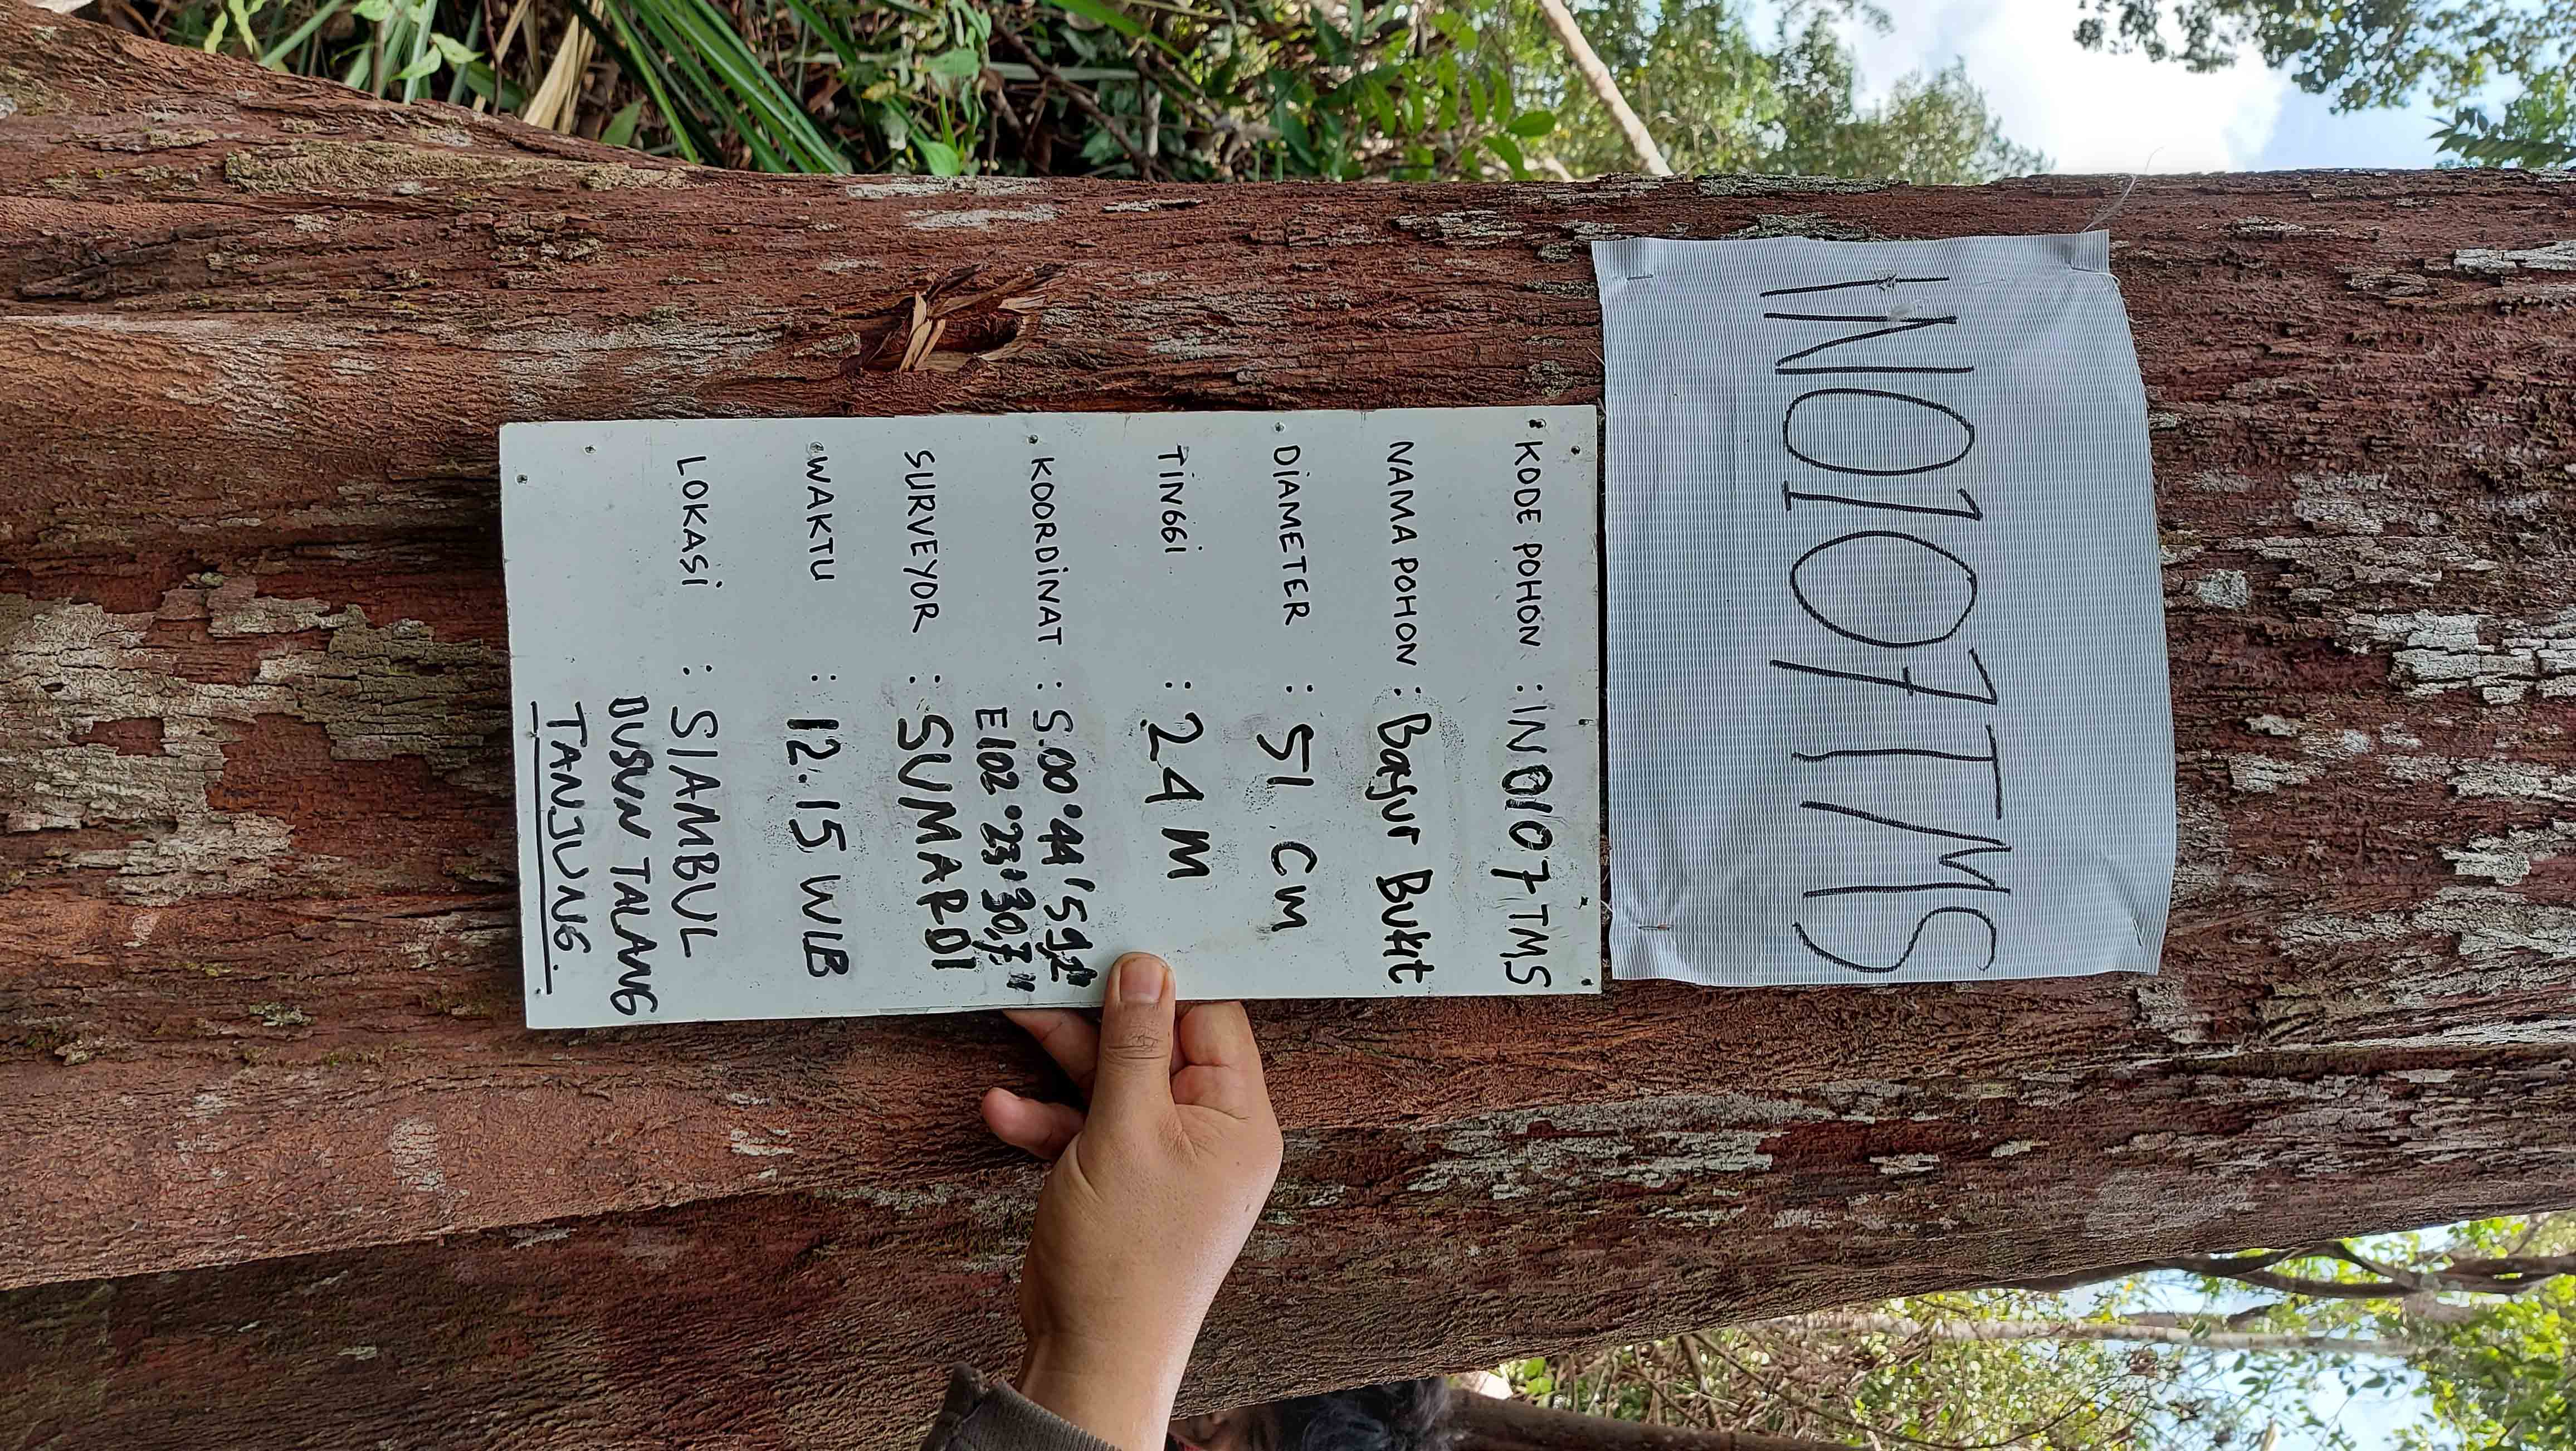 IN0107TMS
KODE POHON : IN0107TMS
NAMA POHON : Bayur Bukit
DIAMETER : 51 Cm
TINGGI : 24 M
KOORDINAT : S.00°44'59,2"
E102°23'30,7"
SURVEYOR : SUMARDI
WAKTU : 12.15 WIB
LOKASI : SIAMBUL
DUSUN TALANG
TANJUNG.